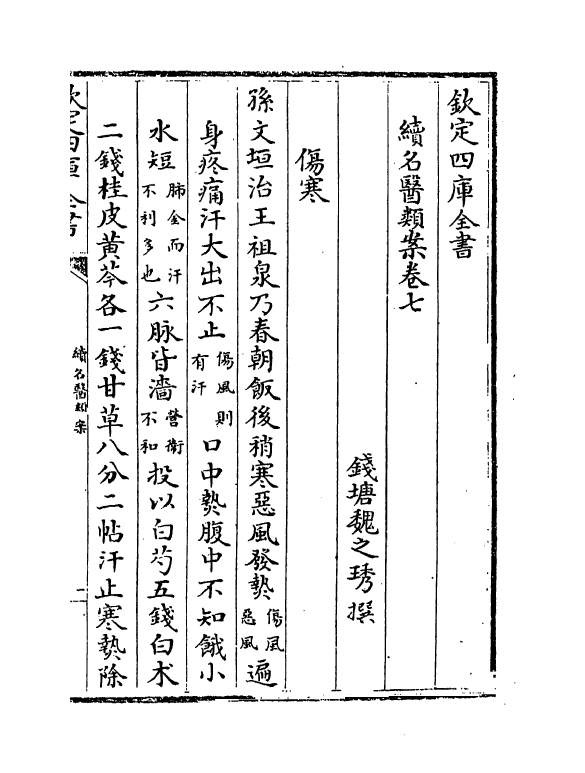 欽定四庫全書
續名醫類案卷七
錢塘魏之琇撰
傷寒
孫文垣治王祖泉乃春朝飯後稍寒惡風發熱傷風惡風遍
身疼痛汗大出不止傷風則有汗口中熱腹中不知餓小
水短肺金而汗不利多也六脉皆濇營衛不和投以白芍五錢白术
二錢桂皮黄芩各一錢甘草八分二帖汗止寒熱除
欽定四庫全書
續名醫類案